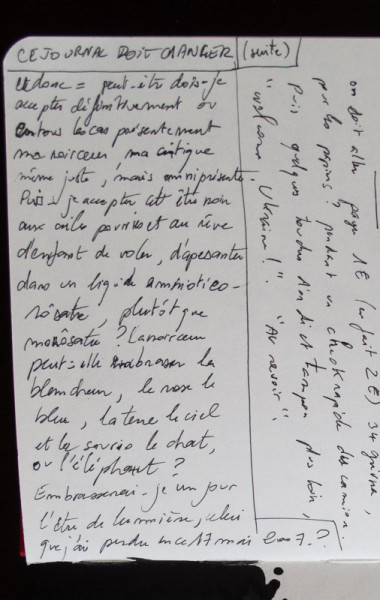 CE JOURNAL DOIT CHANGER (suite)
donc = peut-être dois-je
accepter définitivement ou
en tous les cas présentement
ma noirceur, ma critique
même juste, mais omniprésente.
Puis-je accepter cet être noir
aux ailes pourries et au rêve
d'enfant de voler, d'apesanter
dans un liquide amniotico-
rosâtre, plutôt que
? La noirceur
peut-elle embrasser la
blancheur, le rose le
bleu, la terre le ciel
et la souris le chat,
ou l'éléphant ?
Embrasserai-je un jour
l'être de lumière, celui
que j'ai perdu en ce 17 mai 2007 ?
on doit aller payer 1€ (en fait 2€) 34 grivna,
pour les papiers ? pendant un check rapide du camion.
Puis quelques tondus d'indi et tampon plus loin,
"welcome Ukraine !". "Au revoir".